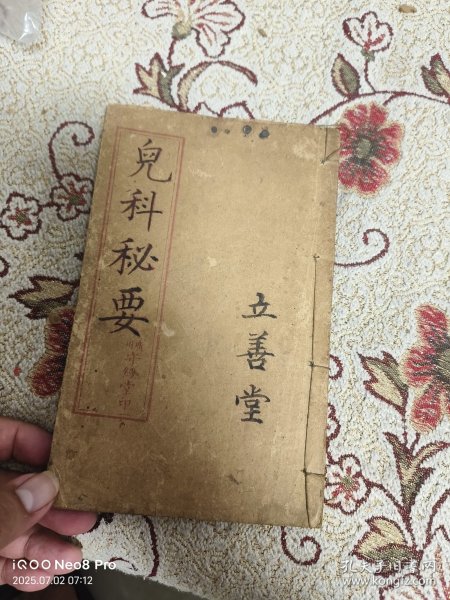 兒科秘要
立善堂
iQOO Neo8 Pro
2025.07.02 07:12
孔夫子旧书网
kongfz.com